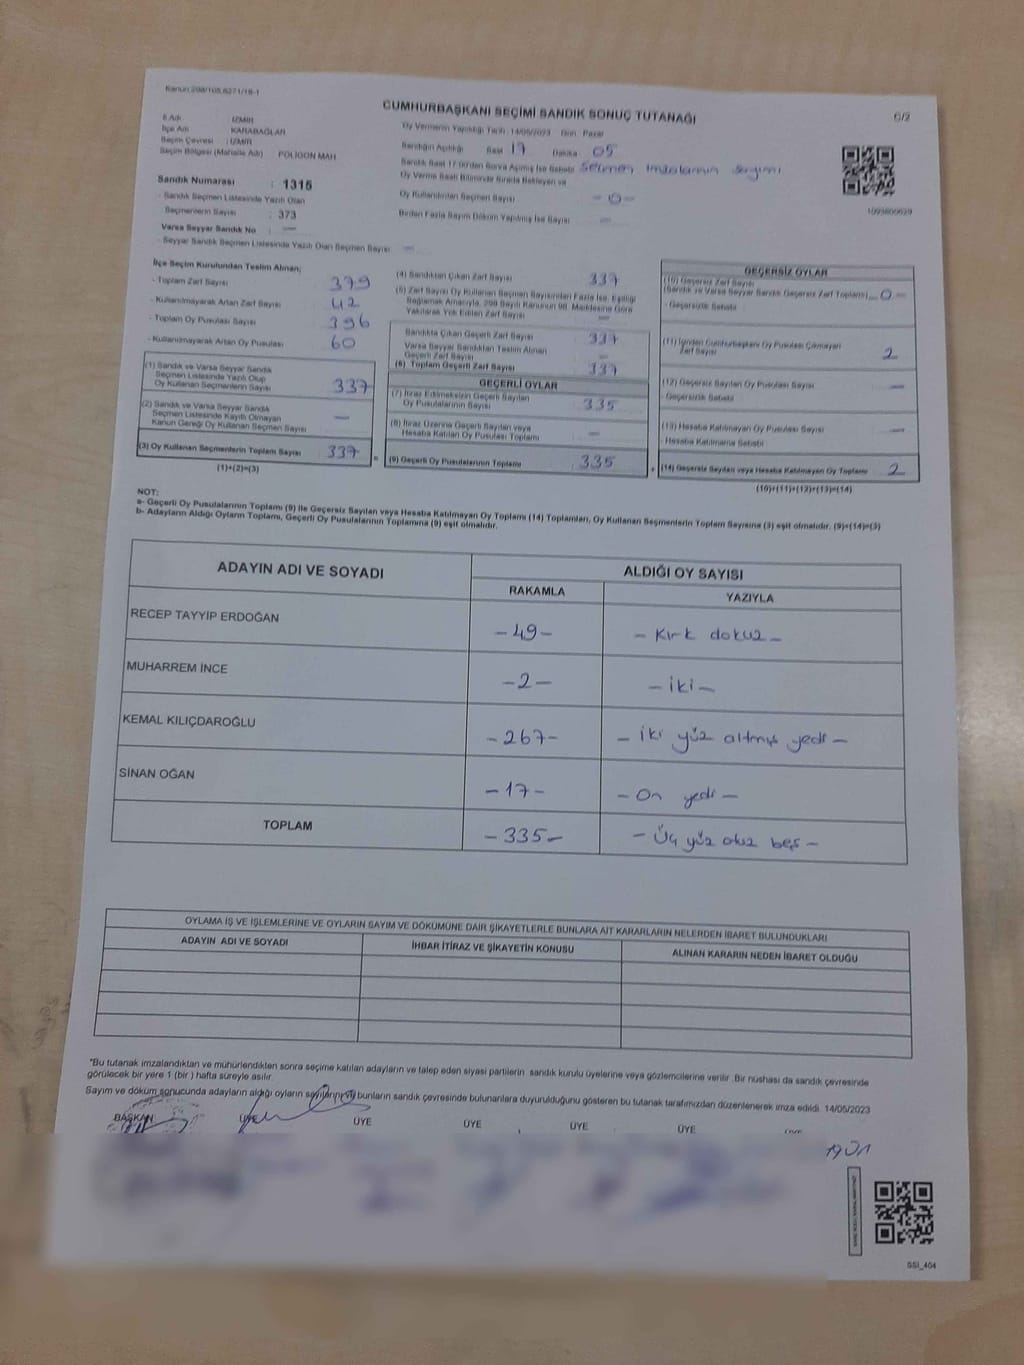 Kanun:298/105,6271/19-1
CUMHURBAŞKANI SEÇİMİ SANDIK SONUÇ TUTANAĞI
C/2
İl Adı : İZMİR
İlçe Adı : KARABAĞLAR
Seçim Çevresi : İZMİR
Seçim Bölgesi (Mahalle Adı) : POLİGON MAH.
Sandık Numarası : 1315
- Sandık Seçmen Listesinde Yazılı Olan
Seçmenlerin Sayısı : 373
Varsa Seyyar Sandık No : —
- Seyyar Sandık Seçmen Listesinde Yazılı Olan Seçmen Sayısı : —
Oy Vermenin Yapıldığı Tarih : 14/05/2023 Gün : Pazar
Sandığın Açıldığı Saat 17 Dakika 05
Sandık Saat 17:00'den Sonra Açılmış İse Sebebi : Seçmen imzalarının sayımı
Oy Verme Saati Bitiminde Sırada Bekleyen ve
Oy Kullandırılan Seçmen Sayısı -0-
Birden Fazla Sayım Döküm Yapılmış İse Sayısı —
1093800629
İlçe Seçim Kurulundan Teslim Alınan;
- Toplam Zarf Sayısı 379
- Kullanılmayarak Artan Zarf Sayısı 42
- Toplam Oy Pusulası Sayısı 396
- Kullanılmayarak Artan Oy Pusulası 60
(1) Sandık ve Varsa Seyyar Sandık
Seçmen Listesinde Yazılı Olup
Oy Kullanan Seçmenlerin Sayısı 337
(2) Sandık ve Varsa Seyyar Sandık
Seçmen Listesinde Kayıtlı Olmayan
Kanun Gereği Oy Kullanan Seçmen Sayısı —
(3) Oy Kullanan Seçmenlerin Toplam Sayısı 337 =
(1)+(2)=(3)
(4) Sandıktan Çıkan Zarf Sayısı 337
(5) Zarf Sayısı Oy Kullanan Seçmen Sayısından Fazla İse, Eşitliği
Sağlamak Amacıyla, 298 Sayılı Kanunun 98. Maddesine Göre
Yakılarak Yok Edilen Zarf Sayısı —
Sandıkta Çıkan Geçerli Zarf Sayısı 337
Varsa Seyyar Sandıktan Teslim Alınan
Geçerli Zarf Sayısı —
(6) Toplam Geçerli Zarf Sayısı 337
GEÇERLİ OYLAR
(7) İtiraz Edilmeksizin Geçerli Sayılan
Oy Pusulalarının Sayısı 335
(8) İtiraz Üzerine Geçerli Sayılan veya
Hesaba Katılan Oy Pusulası Toplamı —
(9) Geçerli Oy Pusulalarının Toplamı 335 +
GEÇERSİZ OYLAR
(10) Geçersiz Zarf Sayısı
(Sandık ve Varsa Seyyar Sandık Geçersiz Zarf Toplamı) -0-
- Geçersizlik Sebebi
(11) İçinden Cumhurbaşkanı Oy Pusulası Çıkmayan
Zarf Sayısı 2
(12) Geçersiz Sayılan Oy Pusulası Sayısı —
- Geçersizlik Sebebi
(13) Hesaba Katılmayan Oy Pusulası Sayısı —
Hesaba Katılmama Sebebi
(14) Geçersiz Sayılan veya Hesaba Katılmayan Oy Toplamı 2
(10)+(11)+(12)+(13)=(14)
NOT:
a- Geçerli Oy Pusulalarının Toplamı (9) ile Geçersiz Sayılan veya Hesaba Katılmayan Oy Toplamı (14) Toplamları, Oy Kullanan Seçmenlerin Toplam Sayısına (3) eşit olmalıdır. (9)+(14)=(3)
b- Adayların Aldığı Oyların Toplamı, Geçerli Oy Pusulalarının Toplamına (9) eşit olmalıdır.
ADAYIN ADI VE SOYADI
ALDIĞI OY SAYISI
RAKAMLA YAZIYLA
RECEP TAYYİP ERDOĞAN -49- - Kırk dokuz -
MUHARREM İNCE -2- - iki -
KEMAL KILIÇDAROĞLU -267- - iki yüz altmış yedi -
SİNAN OĞAN -17- - On yedi -
TOPLAM -335- - Üç yüz otuz beş -
OYLAMA İŞ VE İŞLEMLERİNE VE OYLARIN SAYIM VE DÖKÜMÜNE DAİR ŞİKAYETLERLE BUNLARA AİT KARARLARIN NELERDEN İBARET BULUNDUKLARI
ADAYIN ADI VE SOYADI İHBAR İTİRAZ VE ŞİKAYETİN KONUSU ALINAN KARARIN NEDEN İBARET OLDUĞU
"Bu tutanak imzalandıktan ve mühürlendikten sonra seçime katılan adayların ve talep eden siyasi partilerin sandık kurulu üyelerine veya gözlemcilerine verilir. Bir nüshası da sandık çevresinde
görülecek bir yere 1 (bir ) hafta süreyle asılır.
Sayım ve döküm sonucunda adayların aldığı oyların sayılarını ve bunların sandık çevresinde bulunanlara duyurulduğunu gösteren bu tutanak tarafımızdan düzenlenerek imza edildi. 14/05/2023
BAŞKAN ÜYE ÜYE ÜYE ÜYE ÜYE
SSI_404